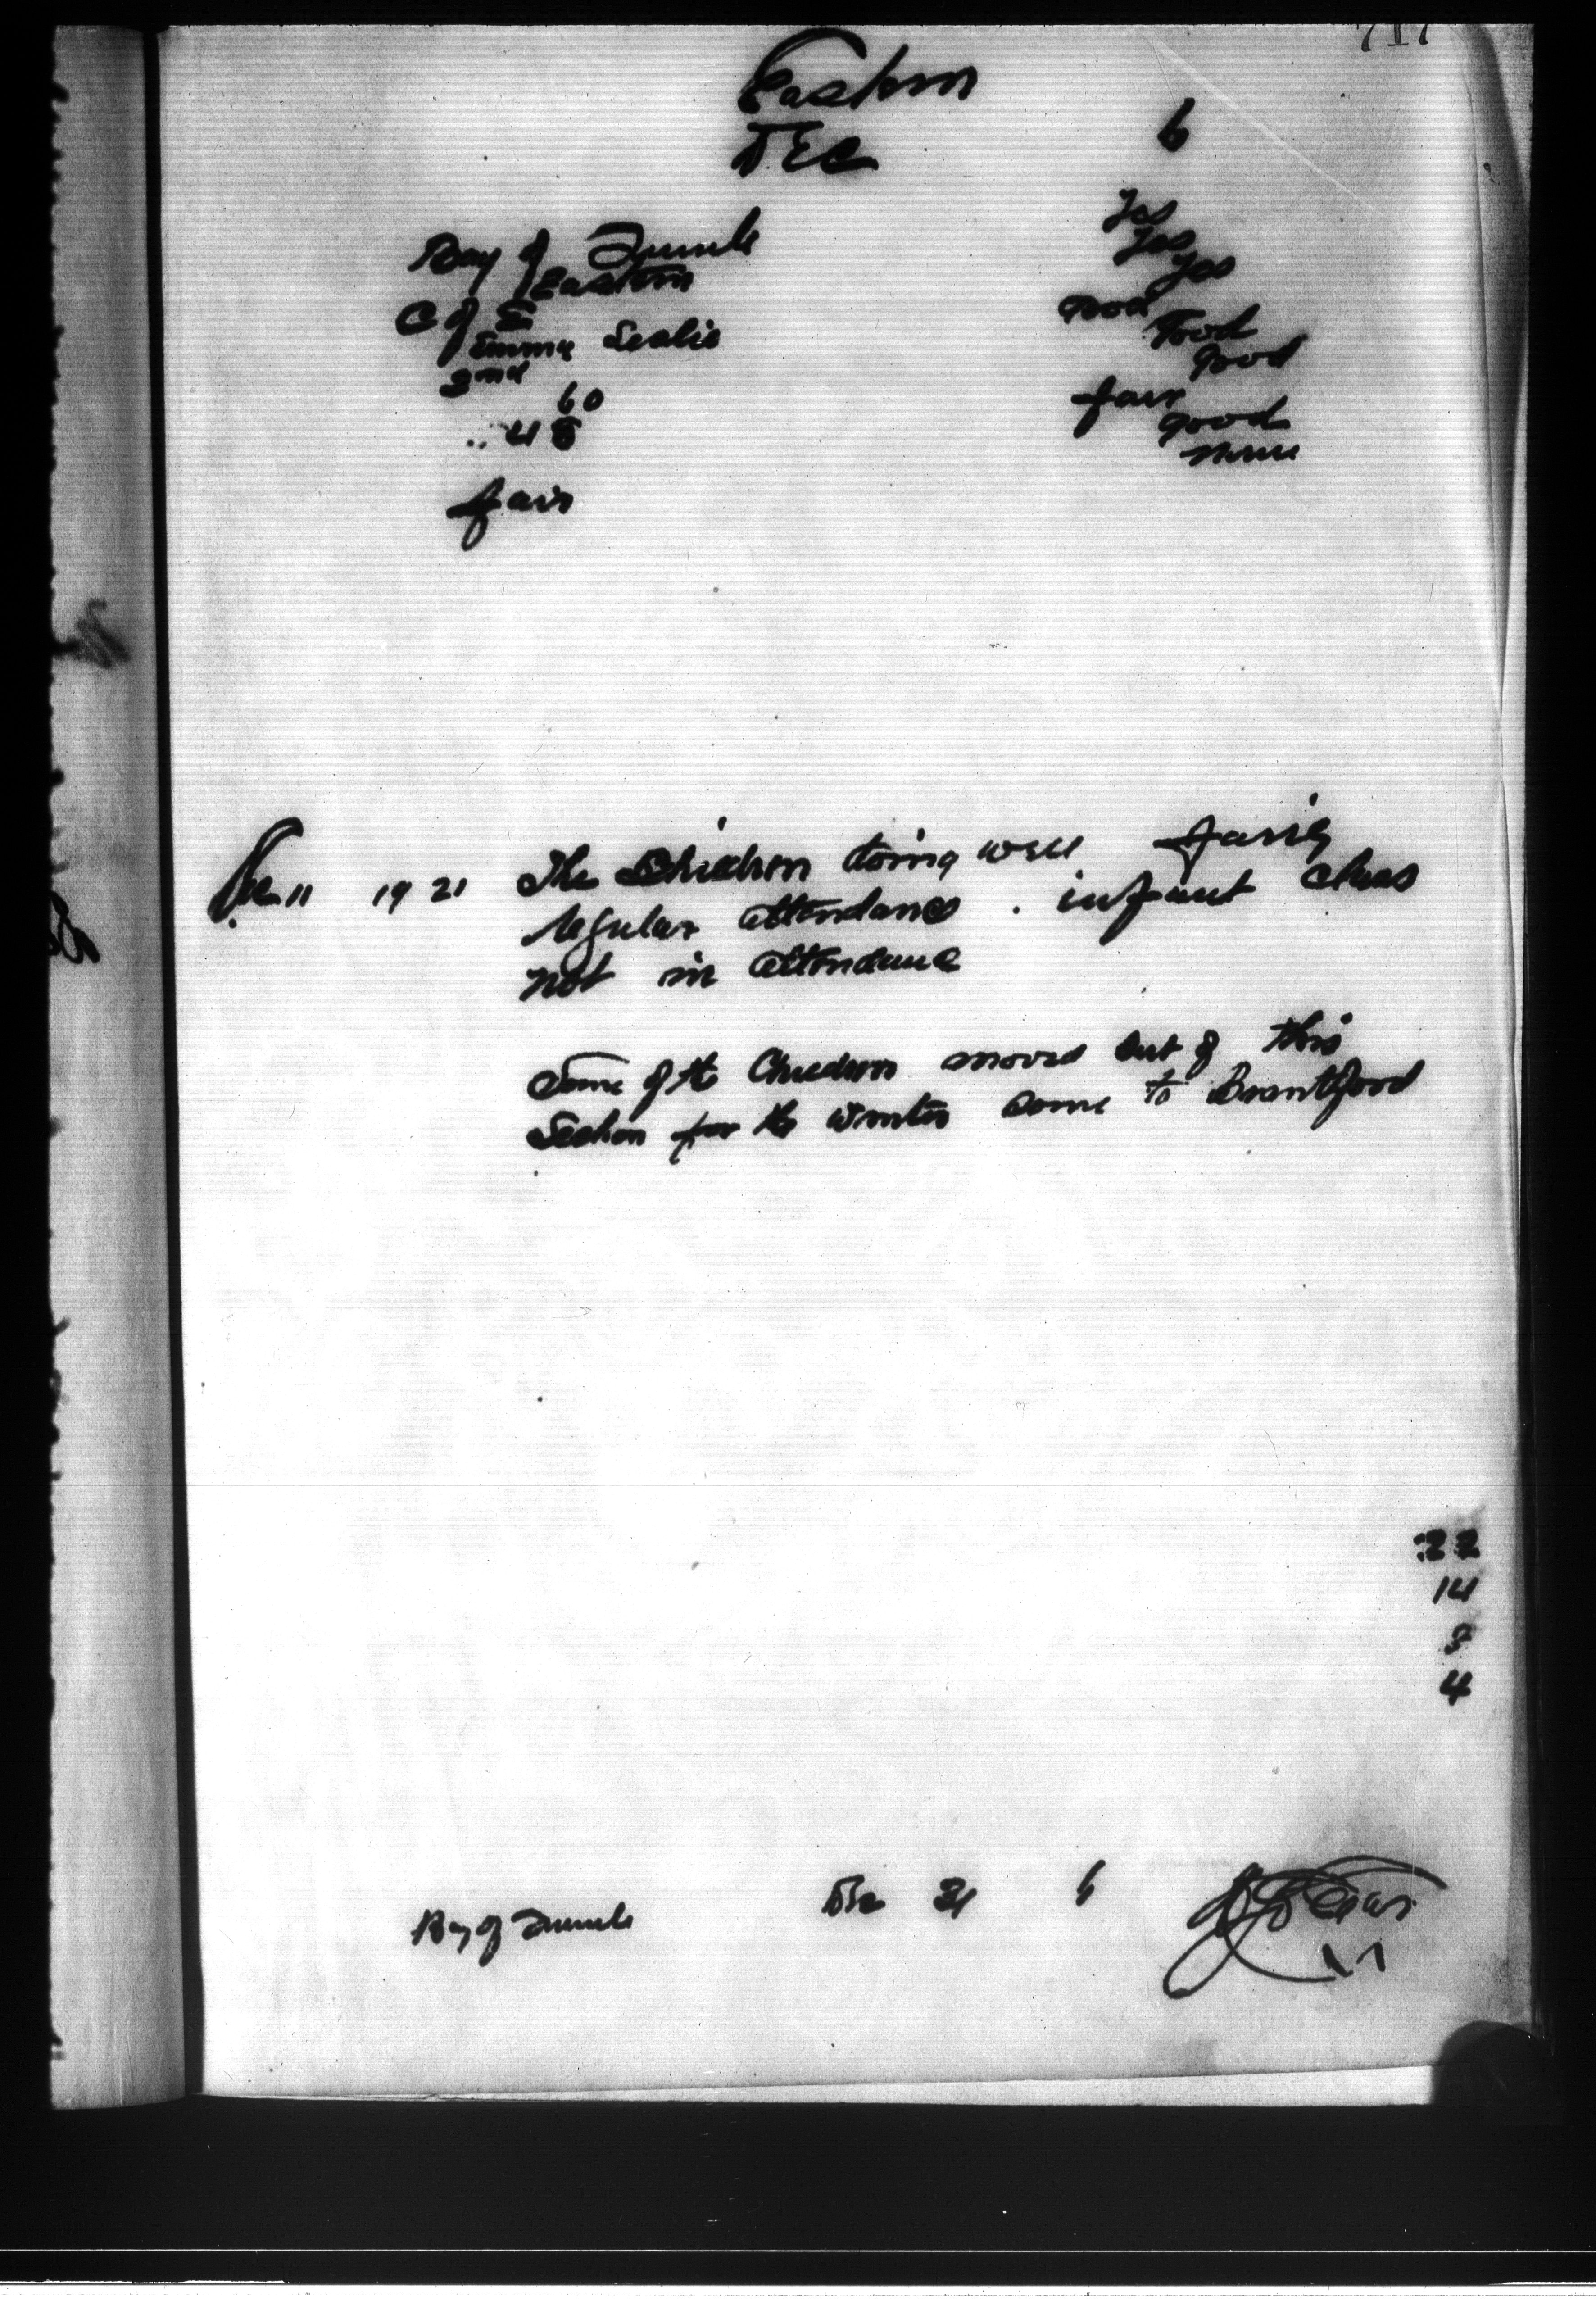 717
Eastern
DEC 6
Bay of Quinte
Eastern
C of E
Emma Leslie
2nd
60
48
fair
Yes
Yes
Yes
Good
Good
Good
fair
good
none
Dec 11 1921 The Children doing well fairly
regular attendance . infant class
not in attendance
Some of the Children moved out of this
Section for the winter Some to Brantford
22
14
8
4
Bay of Quinte Dec 31 6